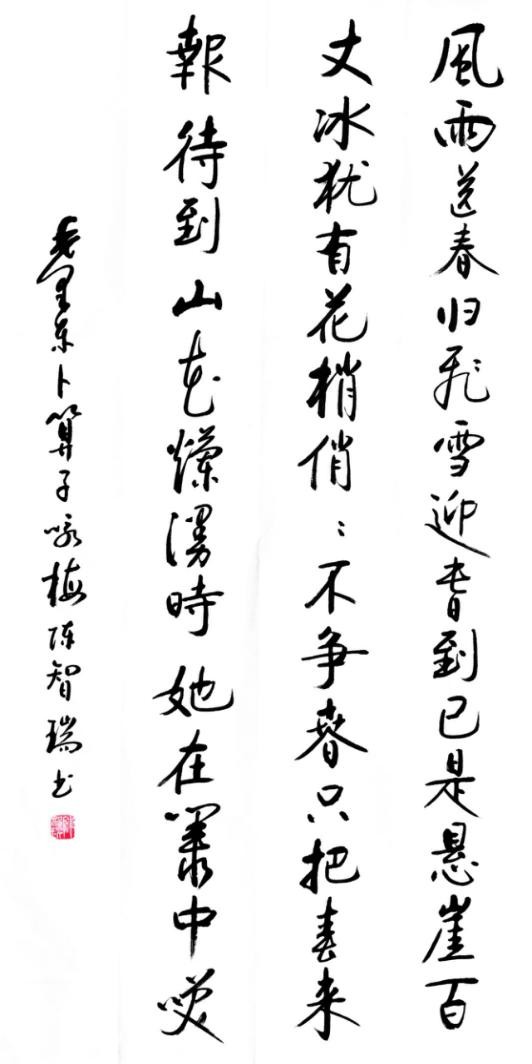 風雨送春归飞雪迎春到已是悬崖百
丈冰犹有花梢俏：不争春只把春来
報待到山花爛漫時她在叢中咲
毛泽东卜算子咏梅陈智瑞书